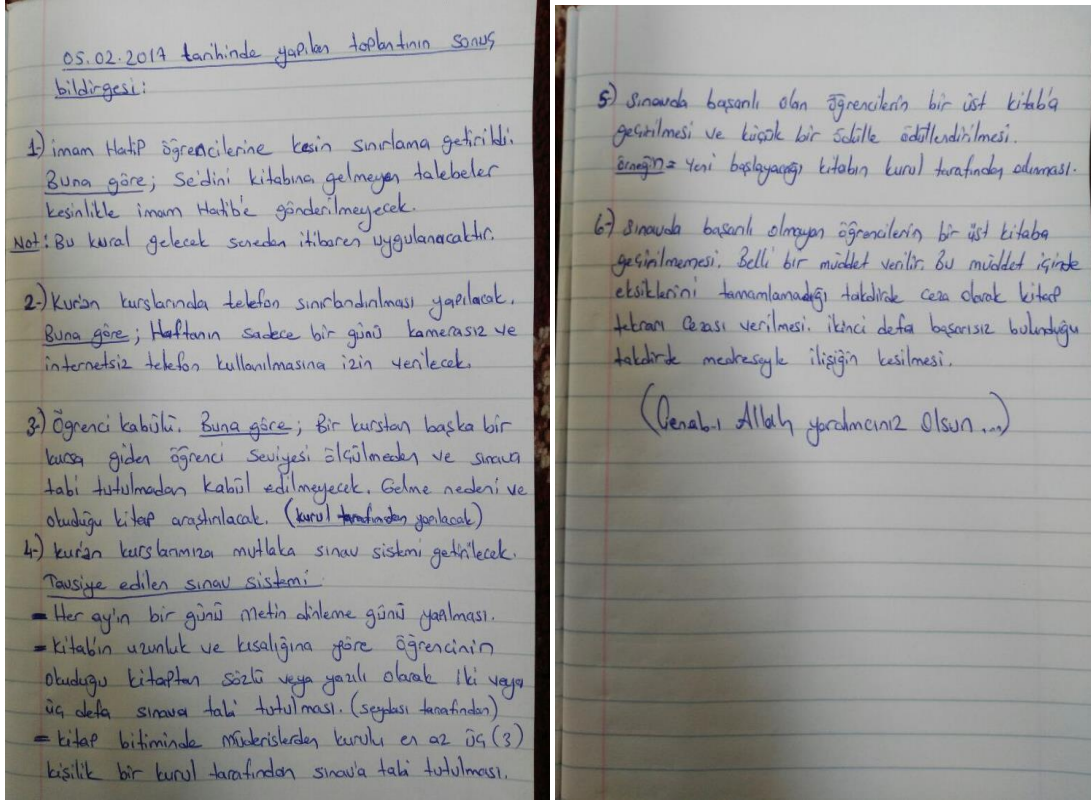 05.02.2017 tarihinde yapılan toplantının sonuç
bildirgesi:
1-) imam Hatip öğrencilerine kesin sınırlama getirildi.
Buna göre; Se'dini kitabına gelmeyen talebeler
kesinlikle imam Hatib'e gönderilmeyecek.
Not: Bu kural gelecek seneden itibaren uygulanacaktır.
2-) Kur'an kurslarında telefon sınırlandırılması yapılacak.
Buna göre; Haftanın sadece bir günü kamerasız ve
internetsiz telefon kullanılmasına izin verilecek.
3-) Öğrenci kabülü. Buna göre; Bir kurstan başka bir
kursa giden öğrenci seviyesi ölçülmeden ve sınava
tabi tutulmadan kabül edilmeyecek. Gelme nedeni ve
okuduğu kitap araştırılacak. (kurul tarafından yapılacak)
4-) kur'an kurslarımıza mutlaka sınav sistemi getirilecek.
Tavsiye edilen sınav sistemi
= Her ay'ın bir günü metin dinleme günü yapılması.
= kitab'ın uzunluk ve kısalığına göre öğrencinin
okuduğu kitaptan sözlü veya yazılı olarak iki veya
üç defa sınava tabi tutulması. (seydası tarafından)
= kitap bitiminde müderislerden kurulu en az üç (3)
kişilik bir kurul tarafından sınav'a tabi tutulması.
5-) Sınavda başarılı olan öğrencilerin bir üst kitab'a
geçirilmesi ve küçük bir ödülle ödüllendirilmesi.
örneğin = Yeni başlayacağı kitabın kurul tarafından alınması.
6-) Sınavda başarılı olmayan öğrencilerin bir üst kitaba
geçirilmemesi. Belli bir müddet verilir. Bu müddet içinde
eksiklerini tamamlamadığı takdirde ceza olarak kitap
tekrarı cezası verilmesi. ikinci defa başarısız bulunduğu
takdirde medreseyle ilişiğin kesilmesi.
(Cenab-ı Allah yardımcınız Olsun...)